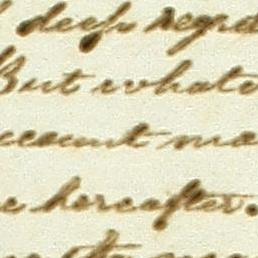 deep regre
But whate
ccount ma
e hereafter.